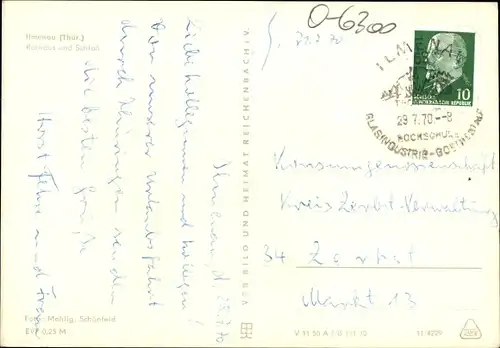 Ilmenau (Thür.)
Rathaus und Schloß
Ilmenau, d. 28.7.70
Liebe Kolleginnen und Kollegen!
Von unserer Urlaubsfahrt
durch Thüringen senden
die besten Grüße
Horst und Frau
Foto: Maldig, Schönfeld
EVP 0,25 M
VEB BILD UND HEIMAT REICHENBACH i. V.
O-6300
ILMENAU
29.7.70--8
HOCHSCHULE
GLASINDUSTRIE-GOETHESTADT
10
DEUTSCHE
DEMOKRATISCHE REPUBLIK
Konsumgenossenschaft
Kreis Zerbst-Verwaltung
34 Zerbst
Markt 13
V 11 50 A 1/B 111 70
11/4229